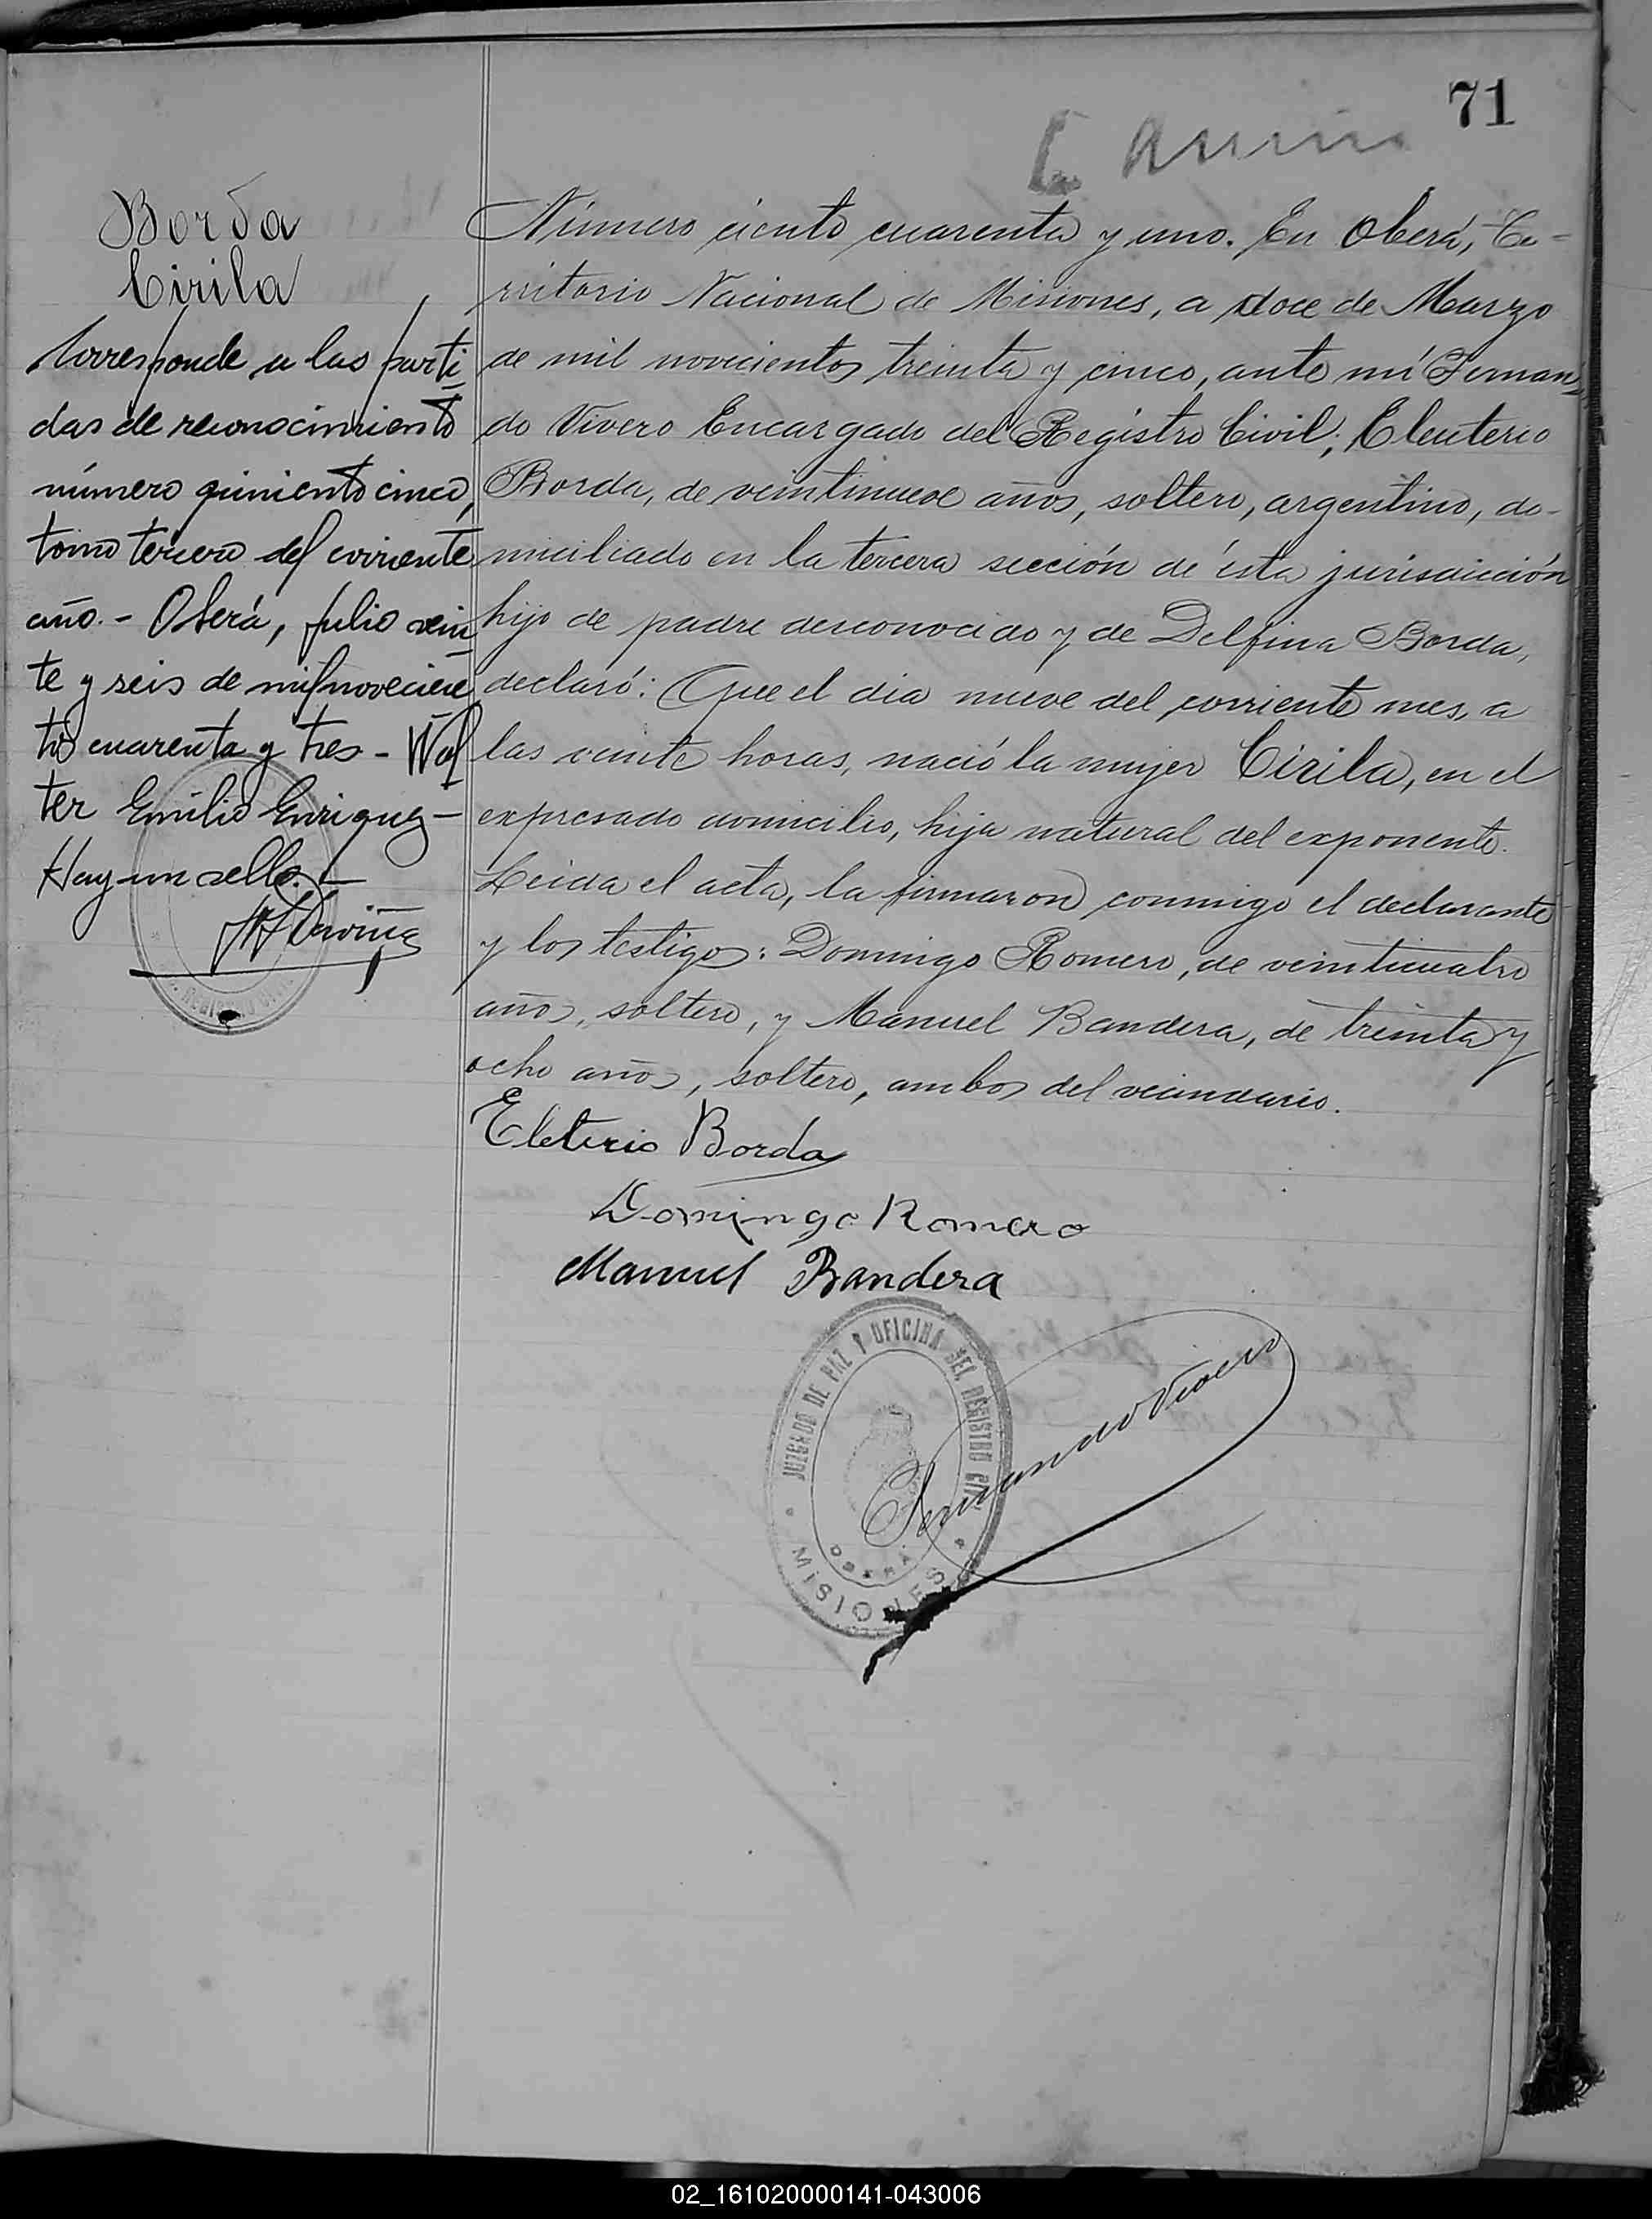 71
Borda
Cirila
Corresponde a las parti
das de reconocimiento
número quiniento cinco,
tomo tercero del corriente
año.- Oberá, Julio vein
te y seis de mil novecien
tos cuarenta y tres - Wal
ter Emilio Enriquez -
Hay un sello. -
Número ciento cuarenta y uno. En Oberá, Te-
rritorio Nacional de Misiones, a doce de Marzo
de mil novecientos treinta y cinco, ante mí Fernan-
do Vivero Encargado del Registro Civil; Eleuterio
Borda, de veintinueve años, soltero, argentino, do-
miciliado en la tercera sección de ésta jurisdicción
hijo de padre desconocido y de Delfina Borda,
declaró: Que el dia nueve del corriente mes, a
las veinte horas, nació la mujer Cirila, en el
expresado domicilio, hija natural del exponente.
Leida el acta, la firmaron conmigo el declarante
y los testigos: Domingo Romero, de veinticuatro
años, soltero, y Manuel Bandera, de treinta y
ocho años, soltero, ambos del vecindario.
Eleterio Borda
Domingo Romero
Manuel Bandera
JUZGADO DE PAZ Y OFICINA DEL REGISTRO CIVIL
OBERÁ
MISIONES
Fernando Vivero
02_161020000141-043006